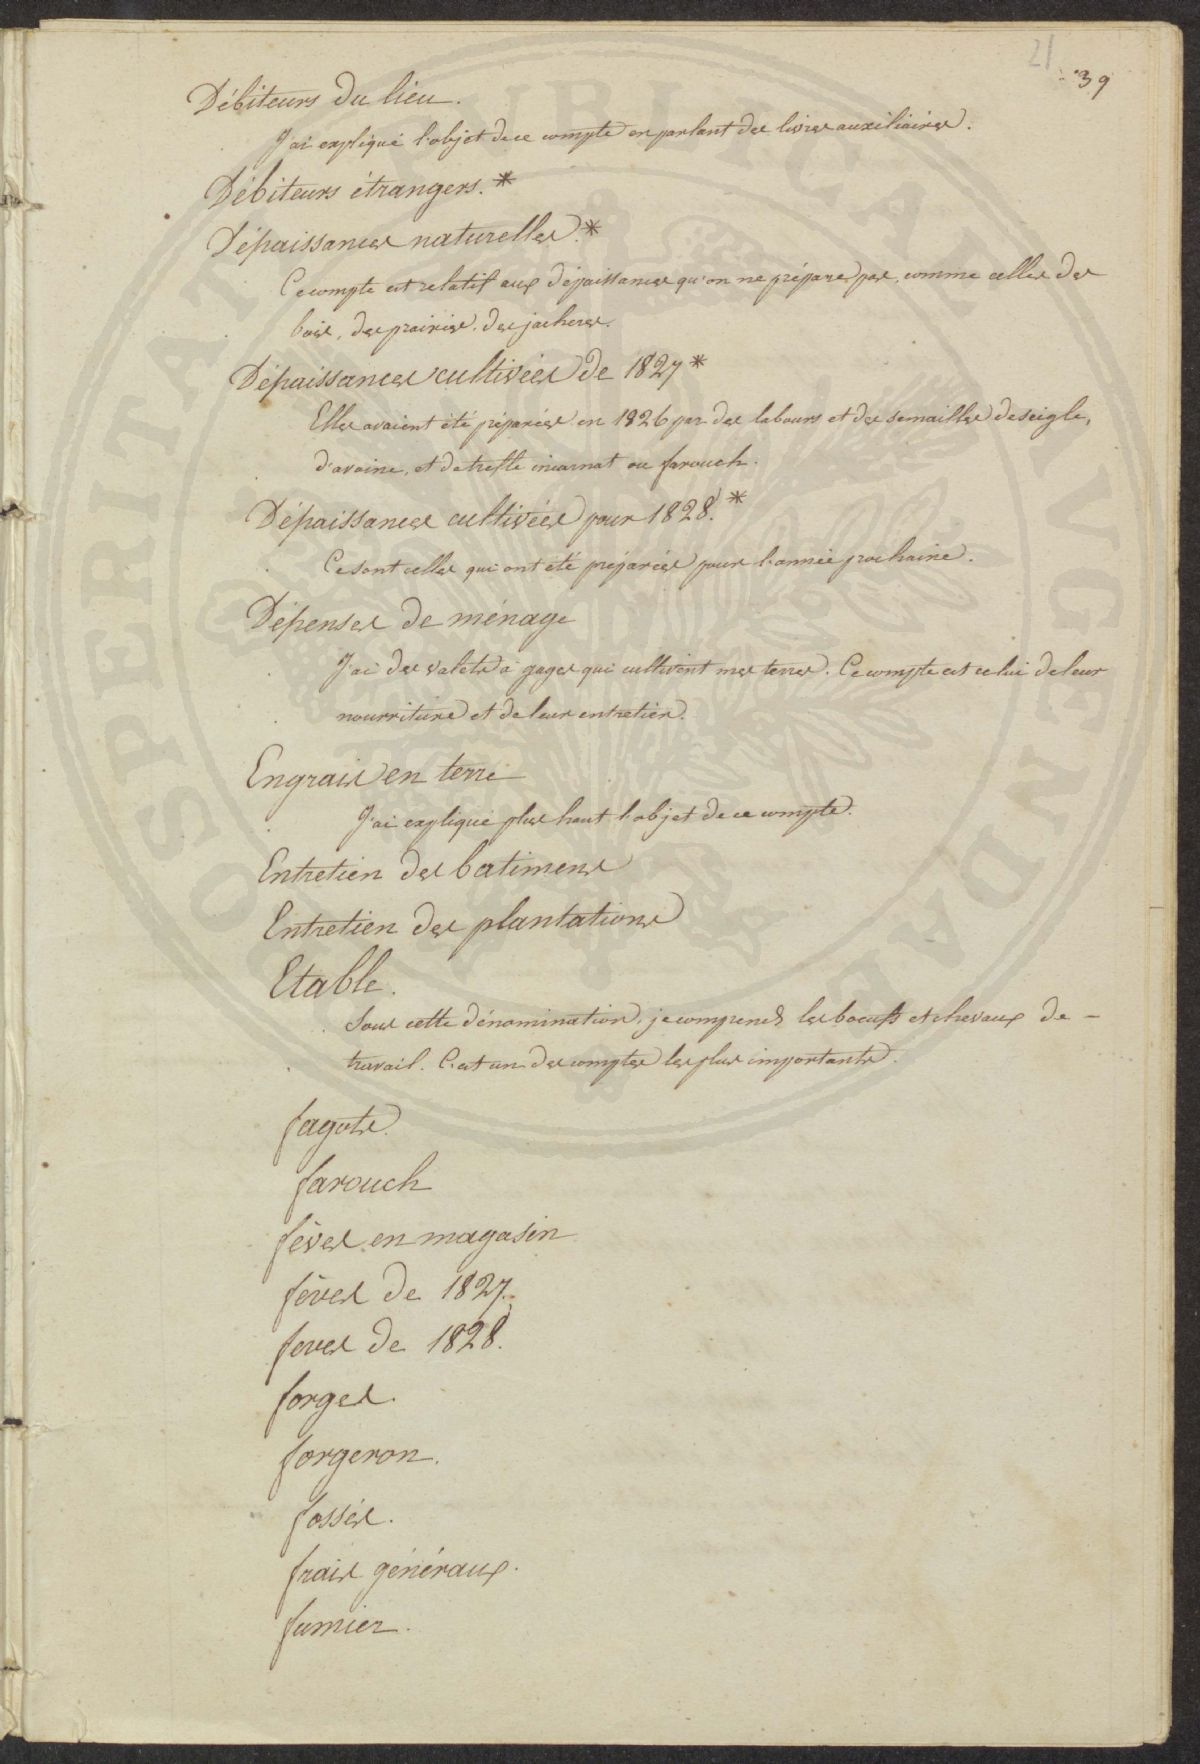 21
39
Débiteurs du lieu.
J'ai expliqué l'objet de ce compte en parlant des livres auxiliaires.
Débiteurs étrangers.*
Dépaissances naturelles.*
Ce compte est relatif aux dépaissances qu'on ne prépare pas, comme celles des
bois, des prairies, des jacheres.
Dépaissances cultivées de 1827*
Elles avaient été préparées en 1826 par des labours et des semailles de seigle,
d'avoine, et de trefle incarnat ou farouch.
Dépaissances cultivées pour 1828.*
Ce sont celles qui ont été préparées pour l'année prochaine.
Dépenses de ménage
J'ai des valets à gages qui cultivent mes terres. Ce compte est celui de leur
nourriture et de leur entretien.
Engrais en terre
J'ai expliqué plus haut l'objet de ce compte.
Entretien des batimens
Entretien des plantations
Etable.
Sous cette dénomination, je comprends les boeufs et chevaux de -
travail. C'est un des comptes les plus importants.
fagots
farouch
fèves en magasin
fèves de 1827.
feves de 1828.
forges.
forgeron.
fossés.
frais généraux.
fumier.
PROSPERITAT PUBLICA AVGVIADA